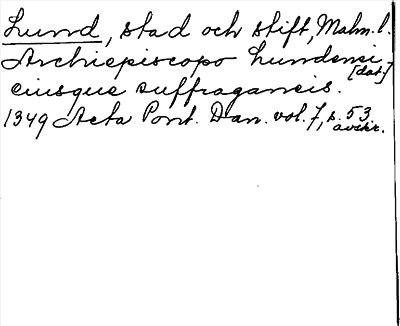 Lund, stad och stift, Malm. l.
Archiepiscopo Lundensi [dat.]
eiusque suffraganeis.
1349 Acta Pont. Dan. vol. 7, s. 53
avskr.